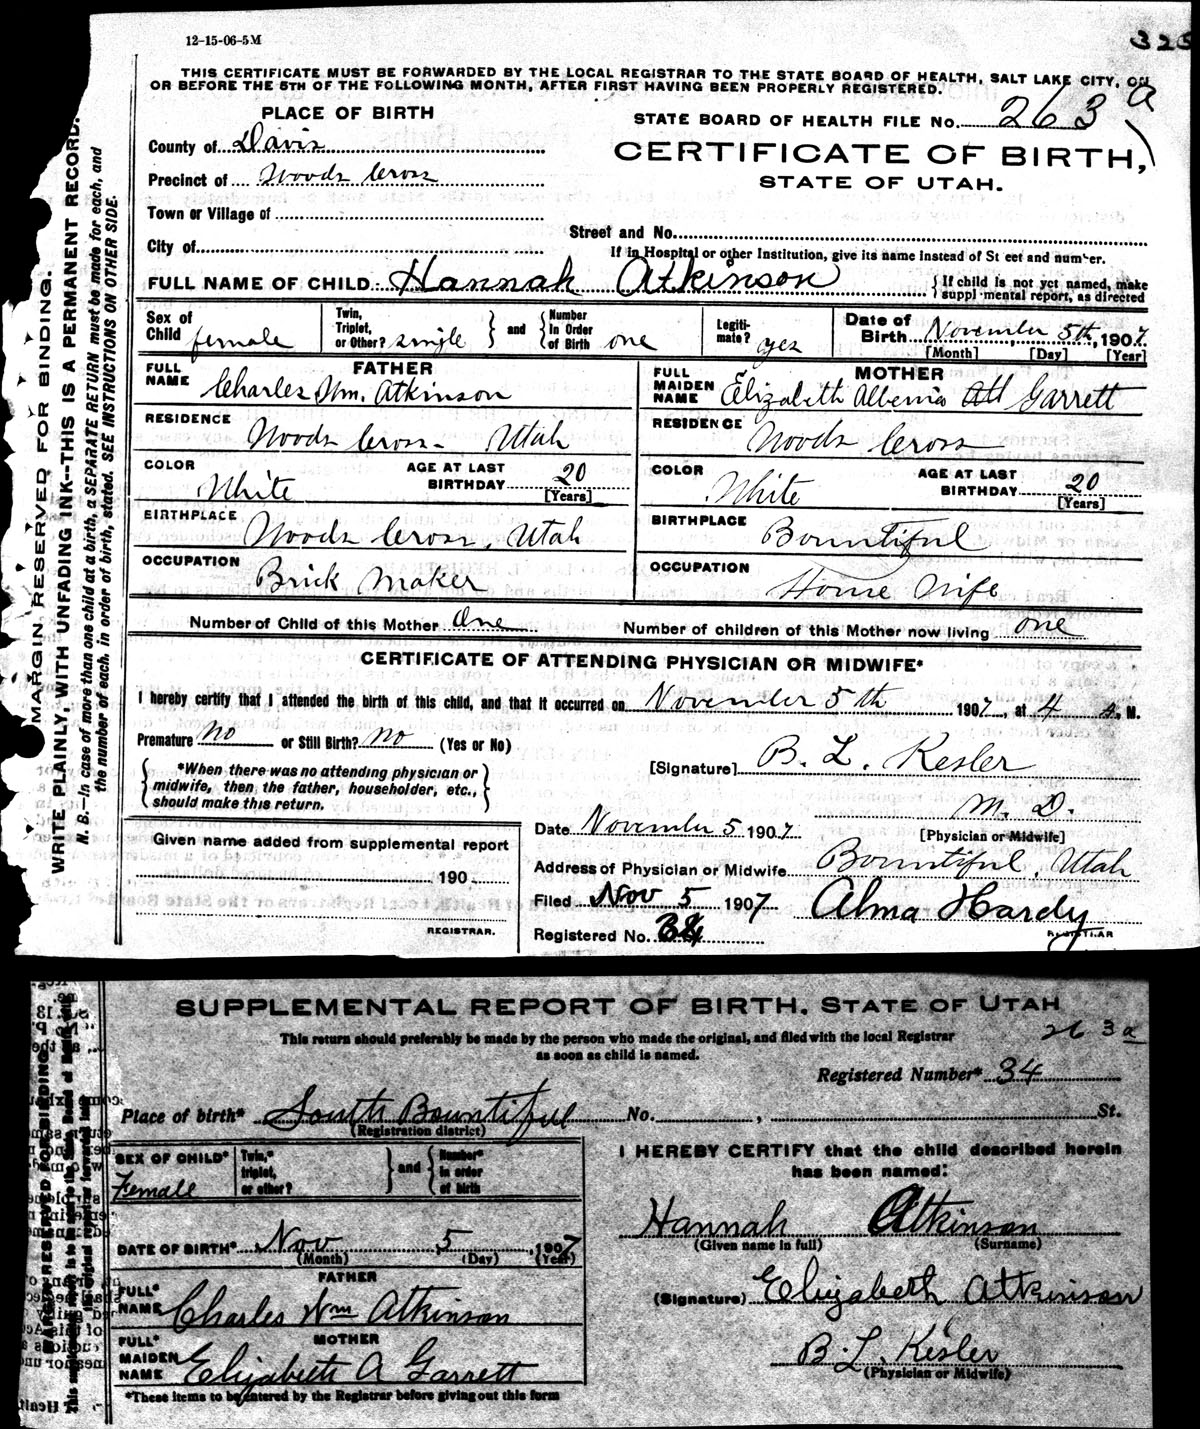 12-15-06-5M
325
THIS CERTIFICATE MUST BE FORWARDED BY THE LOCAL REGISTRAR TO THE STATE BOARD OF HEALTH, SALT LAKE CITY, ON
OR BEFORE THE 5TH OF THE FOLLOWING MONTH, AFTER FIRST HAVING BEEN PROPERLY REGISTERED.
PLACE OF BIRTH
STATE BOARD OF HEALTH FILE No. 263 a
County of Davis
CERTIFICATE OF BIRTH,
Precinct of Woods Cross
STATE OF UTAH.
Town or Village of
Street and No.
City of
If in Hospital or other Institution, give its name instead of St eet and number.
FULL NAME OF CHILD Hannah Atkinson { If child is not yet named, make
suppl mental report, as directed
Sex of Child female Twin, Triplet, or Other? single } and { Number In Order of Birth one Legiti- mate? yes Date of Birth November 5th, 1907.
[Month] [Day] [Year]
FATHER MOTHER
FULL NAME Charles Wm. Atkinson FULL MAIDEN NAME Elizabeth Albenia Att Garrett
RESIDENCE Woods Cross- Utah RESIDENCE Woods Cross
COLOR White AGE AT LAST BIRTHDAY 20 [Years] COLOR White AGE AT LAST BIRTHDAY 20 [Years]
BIRTHPLACE Woods Cross, Utah BIRTHPLACE Bountiful
OCCUPATION Brick Maker OCCUPATION House Wife
Number of Child of this Mother One Number of children of this Mother now living one
CERTIFICATE OF ATTENDING PHYSICIAN OR MIDWIFE*
I hereby certify that I attended the birth of this child, and that it occurred on November 5th 1907, at 4 A. M.
Premature no or Still Birth? no (Yes or No)
B. L. Kesler
[Signature]
*When there was no attending physician or
midwife, then the father, householder, etc.,
should make this return.
M. D.
[Physician or Midwife]
Date November 5 1907
Given name added from supplemental report
Address of Physician or Midwife Bountiful, Utah
190
Filed Nov 5 1907 Alma Hardy
REGISTRAR. REGISTRAR
Registered No. 34
MARGIN RESERVED FOR BINDING.
WRITE PLAINLY, WITH UNFADING INK--THIS IS A PERMANENT RECORD.
N. B.—In case of more than one child at a birth, a SEPARATE RETURN must be made for each, and
the number of each, in order of birth, stated. SEE INSTRUCTIONS ON OTHER SIDE.
SUPPLEMENTAL REPORT OF BIRTH. STATE OF UTAH
263a
This return should preferably be made by the person who made the original, and filed with the local Registrar
as soon as child is named.
Registered Number* 34
Place of birth* South Bountiful No. , St.
(Registration district)
SEX OF CHILD* Female Twin,* triplet, or other? } and { Number* in order of birth
I HEREBY CERTIFY that the child described herein
has been named:
Hannah Atkinson
(Given name in full) (Surname)
DATE OF BIRTH* Nov 5, 1907
(Month) (Day) (Year)
FATHER
FULL* NAME Charles Wm Atkinson
(Signature) Elizabeth Atkinson
MOTHER
FULL* MAIDEN NAME Elizabeth A Garrett
B. L. Kesler
(Physician or Midwife)
*These items to be entered by the Registrar before giving out this form